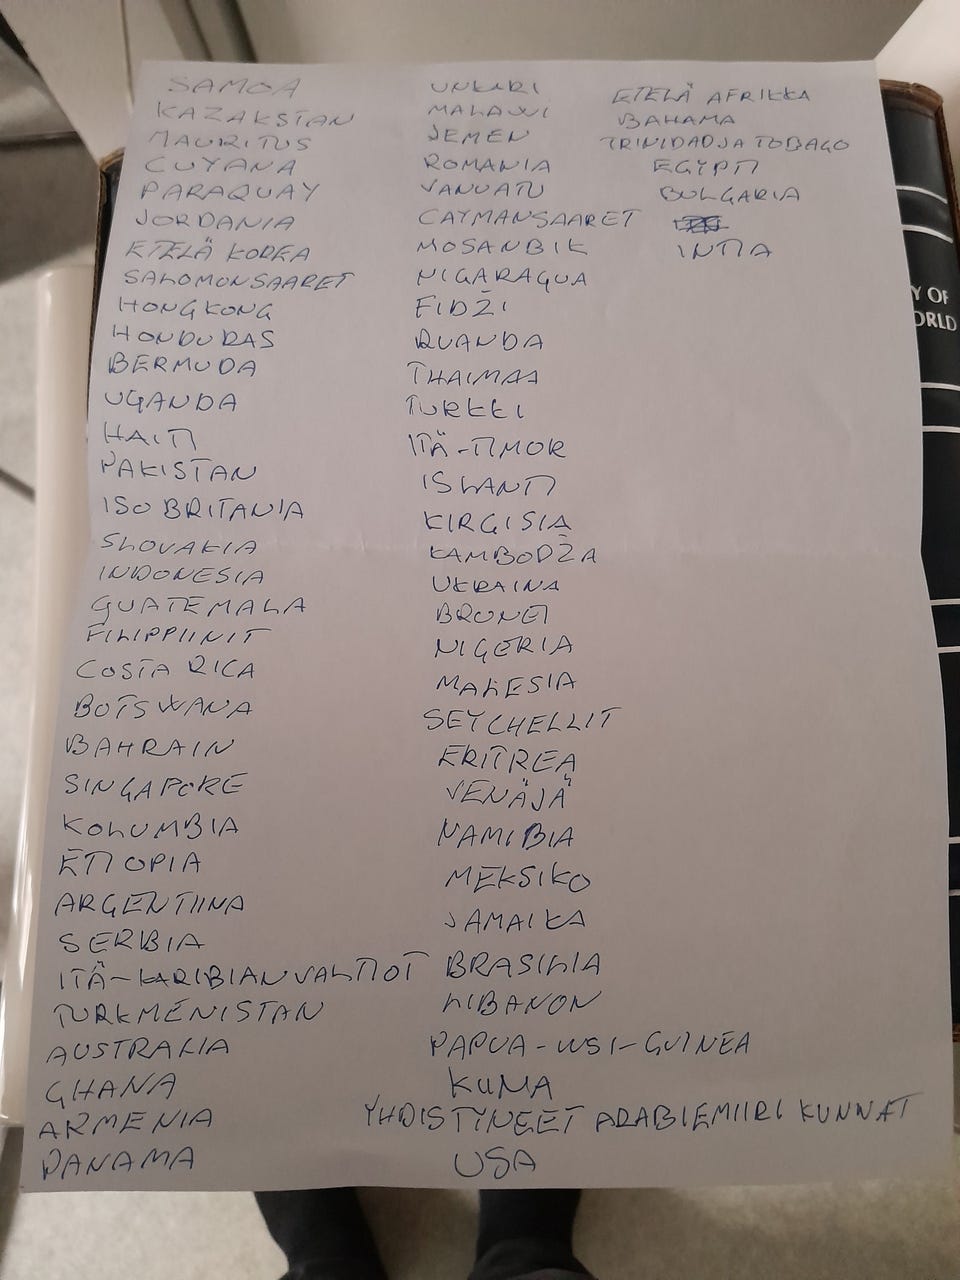 SAMOA
KAZAKSTAN
MAURITUS
GUYANA
PARAQUAY
JORDANIA
ETELÄ KOREA
SALOMONSAARET
HONGKONG
HONDURAS
BERMUDA
UGANDA
HAITI
PAKISTAN
ISO BRITANIA
SLOVAKIA
INDONESIA
GUATEMALA
FILIPPIINIT
COSTA RICA
BOTSWANA
BAHRAIN
SINGAPORE
KOLUMBIA
ETIOPIA
ARGENTIINA
SERBIA
ITÄ-KARIBIANVALTIOT
TURKMENISTAN
AUSTRALIA
GHANA
ARMENIA
PANAMA
UNKARI
MALAWI
JEMEN
ROMANIA
VANUATU
CAYMANSAARET
MOSANBIK
NIGARAGUA
FIDŽI
RUANDA
THAIMAA
TURKKI
ITÄ-TIMOR
ISLANTI
KIRGISIA
KAMBODŽA
UKRAINA
BRUNEI
NIGERIA
MALESIA
SEYCHELLIT
ERITREA
VENÄJÄ
NAMIBIA
MEKSIKO
JAMAIKA
BRASILIA
LIBANON
PAPUA-USI-GUINEA
KUUMA
YHDISTYNEET ARABIEMIIRI KUNNAT
USA
ETELÄ AFRIKKA
BAHAMA
TRINIDADJA TOBAGO
EGYPTI
BULGARIA
INTIA
Y OF
ORLD